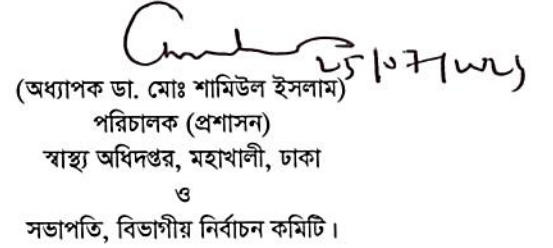 25/07/2023
(অধ্যাপক ডা. মোঃ শামিউল ইসলাম)
পরিচালক (প্রশাসন)
স্বাস্থ্য অধিদপ্তর, মহাখালী, ঢাকা
ও
সভাপতি, বিভাগীয় নির্বাচন কমিটি।